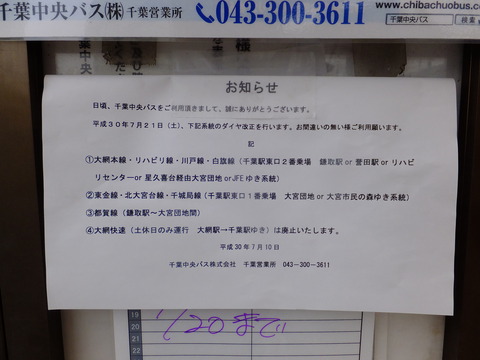 www.chibachuobus.co
千葉中央バス㈱ 千葉営業所 043-300-3611
千葉中央バス 検索
様
千葉中央
お知らせ
日頃、千葉中央バスをご利用頂きまして、誠にありがとうございます。
平成30年7月21日(土)、下記系統のダイヤ改正を行います。お間違いの無い様ご利用願います。
記
①大網本線・リハビリ線・川戸線・白旗線(千葉駅東口2番乗場 鎌取駅 or 誉田駅 or リハビ
リセンターor 星久喜台経由大宮団地 orJFE ゆき系統)
②東金線・北大宮台線・千城局線(千葉駅東口1番乗場 大宮団地 or 大宮市民の森ゆき系統)
③都賀線(鎌取駅~大宮団地間)
④大網快速(土休日のみ運行 大網駅→千葉駅ゆき)は廃止いたします。
平成30年7月10日
千葉中央バス株式会社 千葉営業所 043-300-3611
19
20
21
22
7/20まで